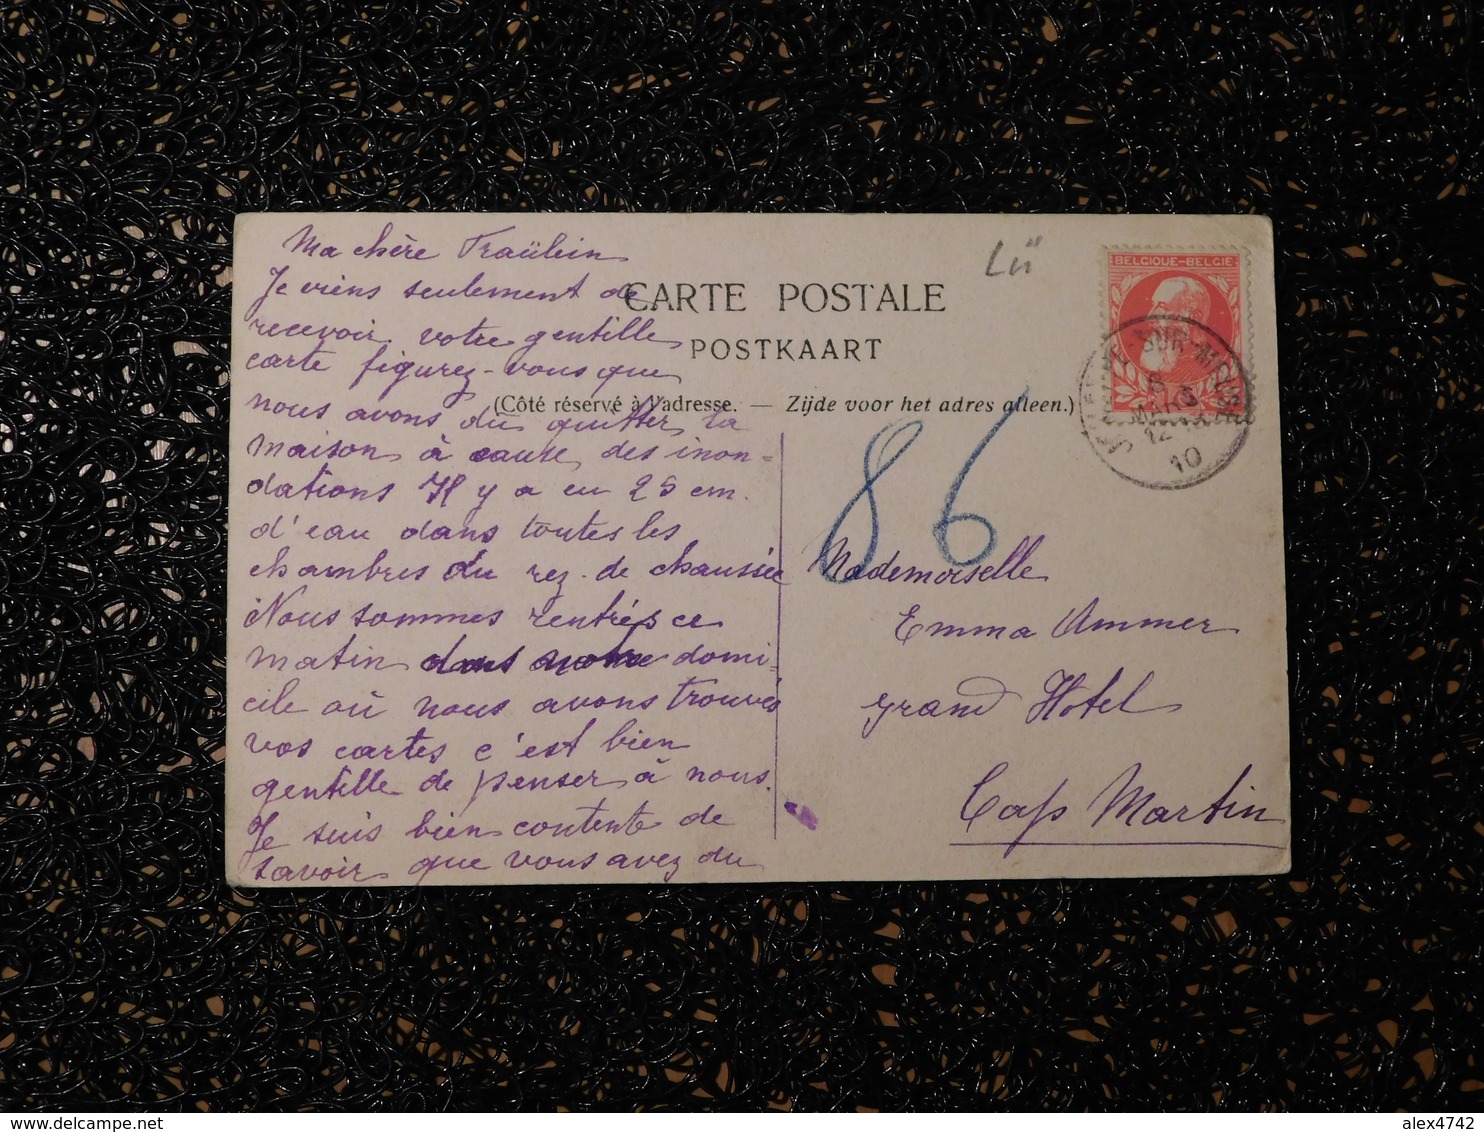 Ma chère Fraülein
Je viens seulement de
recevoir votre gentille
carte figurez-vous que
nous avons dû quitter la
maison à cause des inon-
dations Il y a eu 25 cm.
d'eau dans toutes les
chambres du rez-de chaussée
Nous sommes rentrés ce
matin dans notre domi-
cile où nous avons trouvés
vos cartes c'est bien
gentille de penser à nous.
Je suis bien contente de
savoir que vous avez du
CARTE POSTALE
POSTKAART
(Côté réservé à l'adresse. — Zijde voor het adres alleen.)
BELGIQUE-BELGIE
SUR-MEUSE
MARS
12
10
86
Mademoiselle
Emma Ammer
grand Hotel
Cap Martin
alex4742